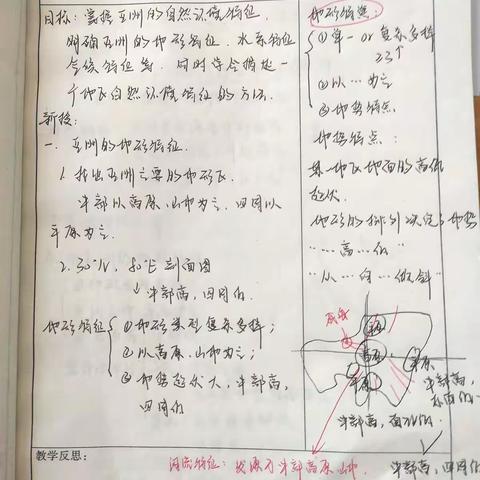 目标：掌握亚洲的自然环境特征.
明确亚洲的地形特征、水系特征
气候特征等. 同时学会描述一
个地区自然环境特征的方法.
新授：
一. 亚洲的地形特征.
1. 找出亚洲主要的地形区.
中部以高原、山地为主. 四周以
平原为主.
2. 30°N, 80°E 剖面图
↓ 中部高, 四周低.
地形特征
① 地形类型复杂多样；
② 以高原、山地为主；
③ 地势起伏大, 中部高,
四周低
地形特点：
① 单一 or 复杂多样
≥3个
② 以…为主
③ 地势特点
地势特点：
某一地区地面的高低
起伏.
地形的排列决定了地势
"…高…低"
"从…向…倾斜"
高原
平原
中部高,
东西低
中部高, 南北低
中部高, 四周低
教学反思：
河流特征：发源于中部高原山地.